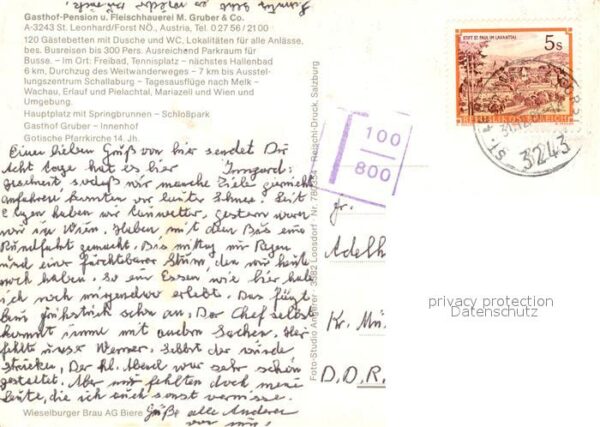 Gasthof-Pension u. Fleischhauerei M. Gruber & Co.
A-3243 St. Leonhard/Forst NÖ., Austria, Tel. 0 27 56 / 21 00
120 Gästebetten mit Dusche und WC, Lokalitäten für alle Anlässe,
bes. Busreisen bis 300 Pers. Ausreichend Parkraum für
Busse. – im Ort: Freibad, Tennisplatz – nächstes Hallenbad
6 km, Durchzug des Weitwanderweges – 7 km bis Ausstel-
lungszentrum Schallaburg – Tagesausflüge nach Melk –
Wachau, Erlauf und Pielachtal, Mariazell und Wien und
Umgebung.
Hauptplatz mit Springbrunnen – Schloßpark
Gasthof Gruber – Innenhof
Gotische Pfarrkirche 14. Jh.
Einen lieben Gruß von hier sendet Dir
Acht Tage hat es hier Irmgard.
geschneit, sodaß wir manche Ziele nicht
anfahren konnten vor lauter Schnee. Seit
2 Tagen haben wir Tauwetter, gestern waren
wir in Wien. Haben mit dem Bus eine
Rundfahrt gemacht. Bis mittag nur Regen
und einen furchtbaren Sturm, den wir heute
noch haben. So ein Essen wie hier habe
ich noch nirgendwo erlebt. Das fängt
beim Frühstück schon an. Der Chef selbst
kommt immer mit andern Sachen. Hier
fehlte unser Werner. Selbst der würde
streiken. Der hl. Abend war sehr schön
gestaltet. Aber mir fehlten doch meine
Leute, die ich auch sonst vermisse.
Grüße alle Anderen
von mir!
Wieselburger Brau AG Biere
Foto-Studio Angerer 3382 Loosdorf
Reischl-Druck, Salzburg
100
800
STIFT ST. PAUL IM LAVANTTAL
5 S
REPUBLIK ÖSTERREICH
3243
Fr.
Adelh
Kr. Mü
D.D.R.
privacy protection
Datenschutz